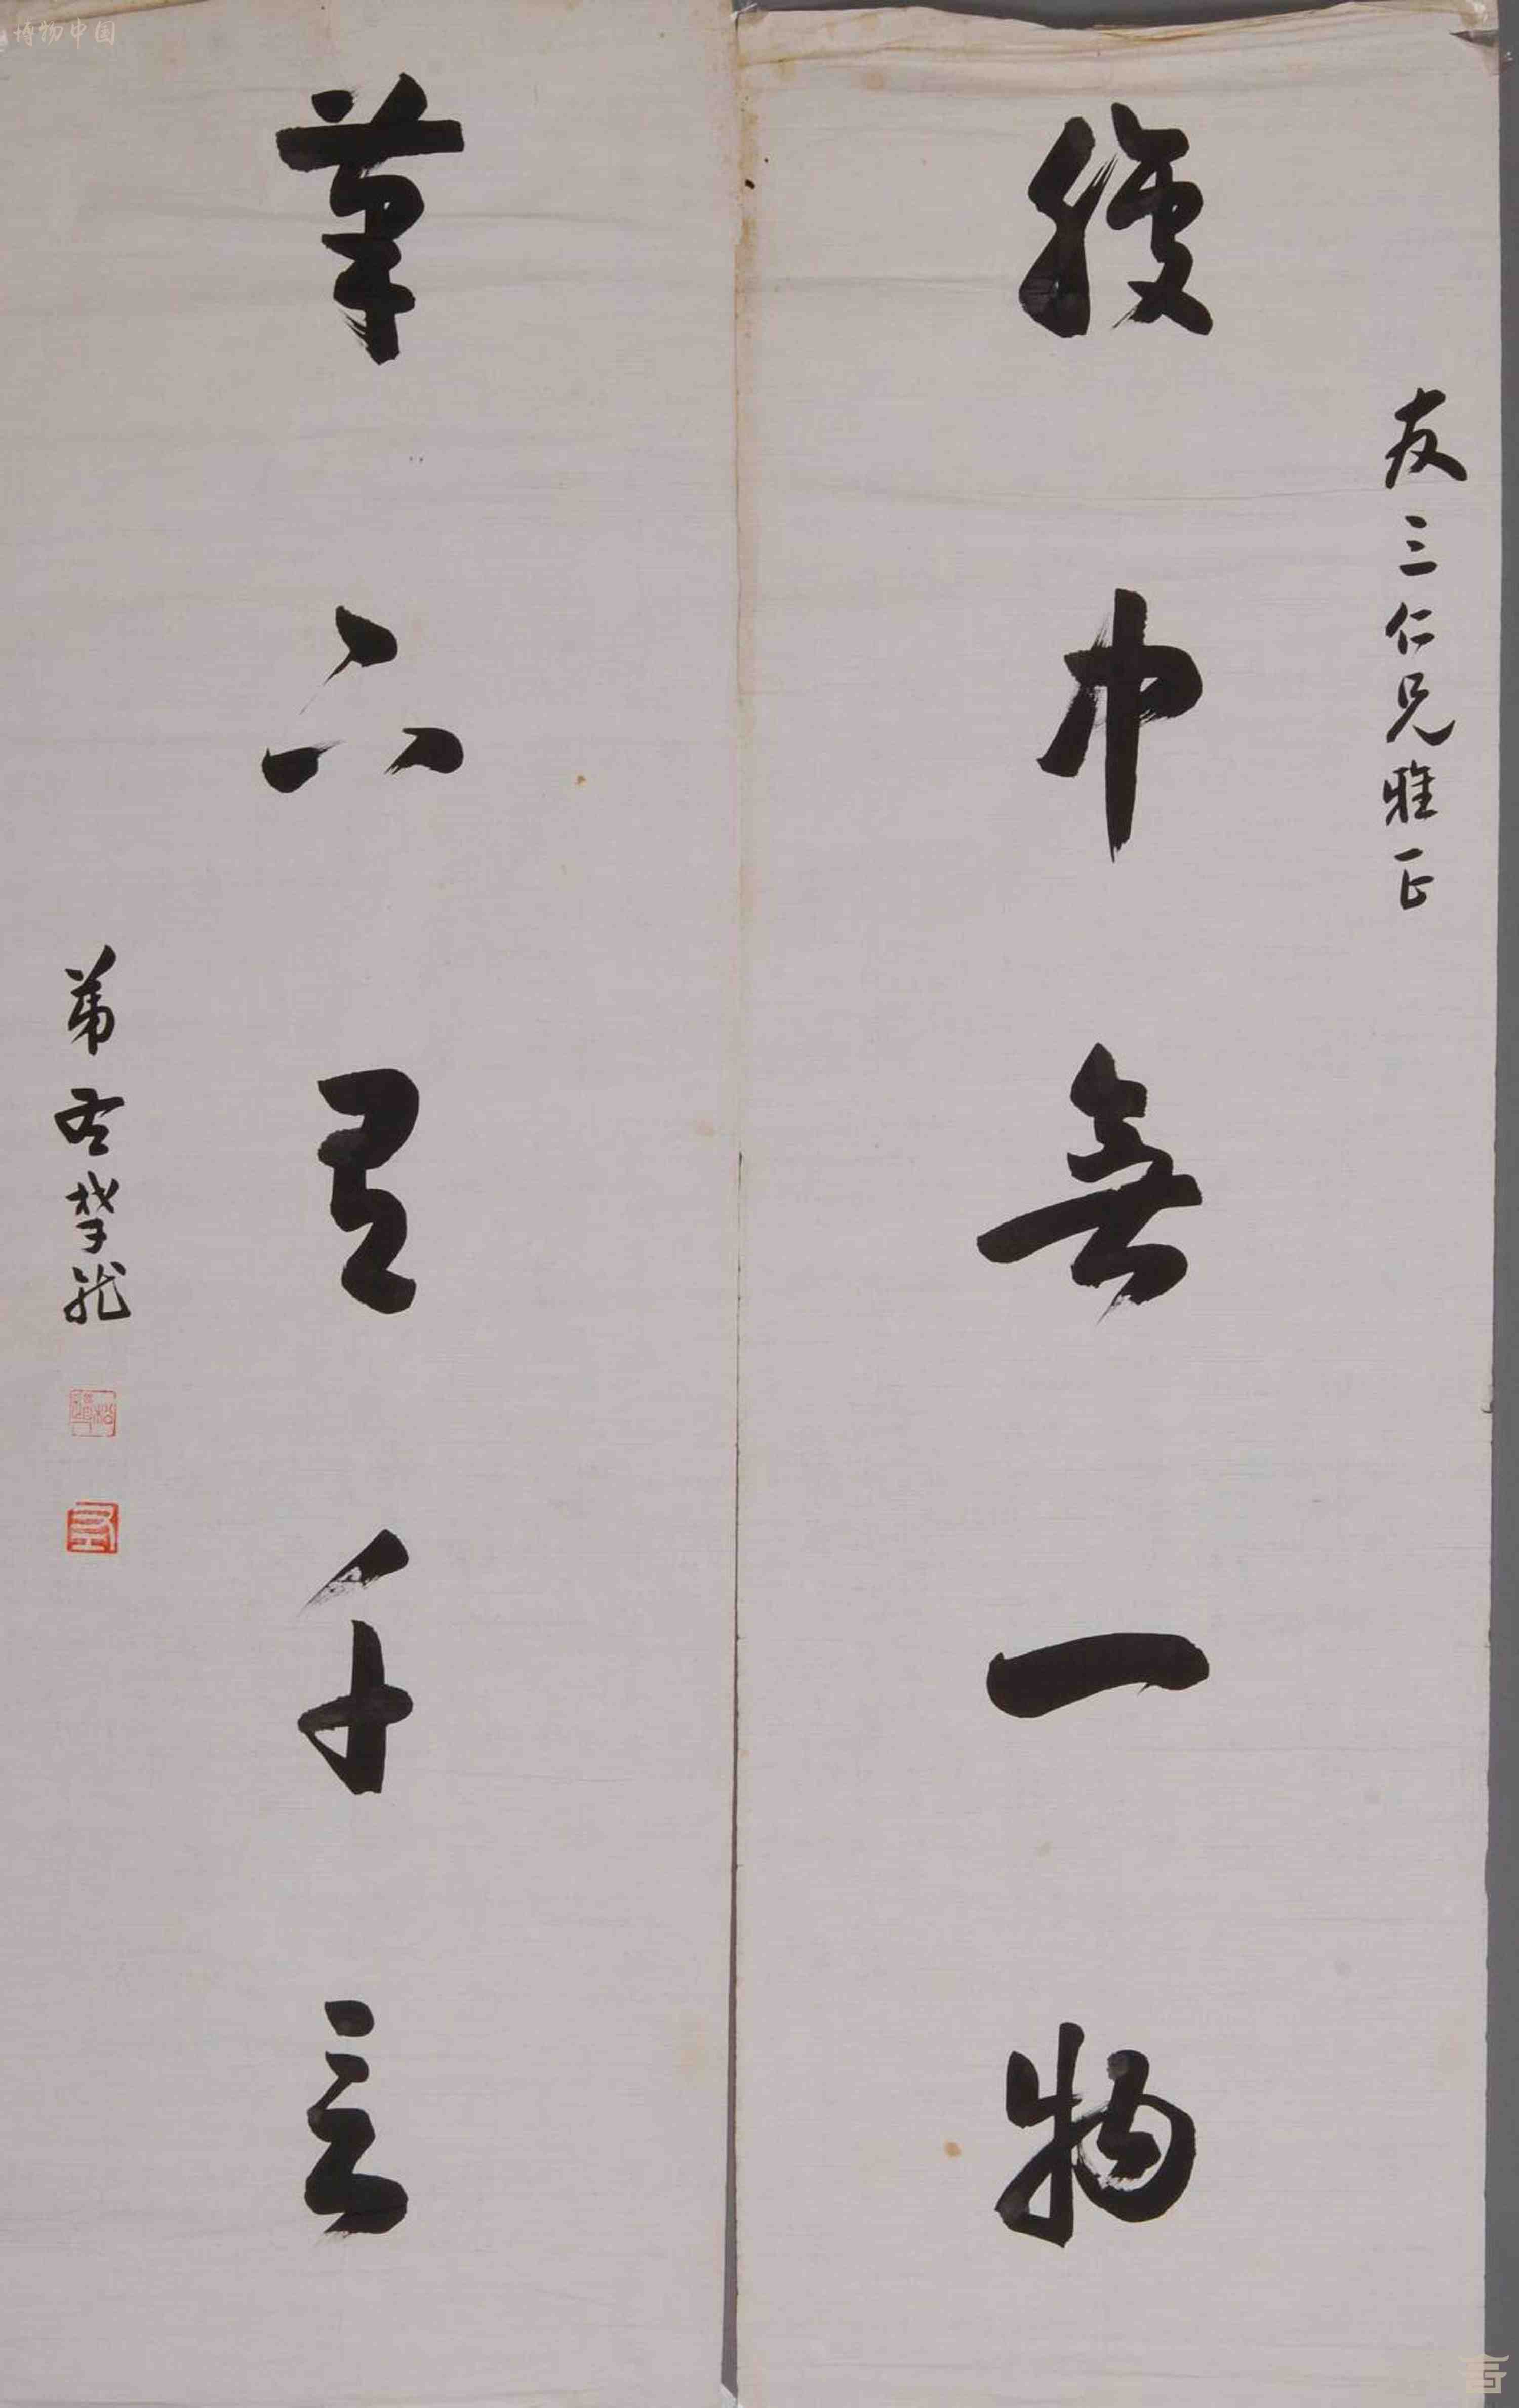 友三仁兄雅正
腹中無一物
筆下有千言
弟
博物中国